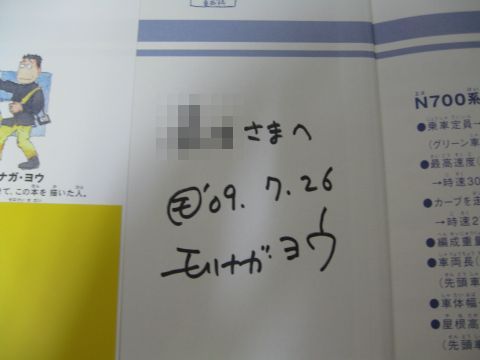 ナガ・ヨウ
せて、この本を描いた人。
さまへ
モ '09. 7. 26
モリナガ・ヨウ
N700系
●乗車定員→
(グリーン車
●最高速度(
→時速30
●カーブを走
→時速2
●編成重量
●車両長(
(先頭車
●車体幅
●屋根高
(先頭車